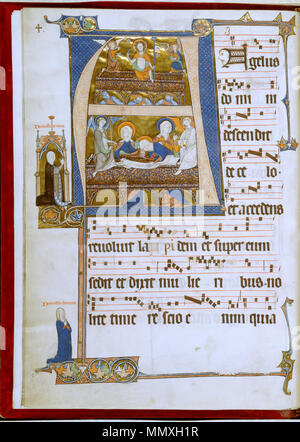 Angelus
do mi ni
descendit
de ce lo
et accedens
revolvit la pi dem et super eum
sedit et dixit mu lie ri bus no
lite time re scio e nim quia
alamy
www.alamy.com